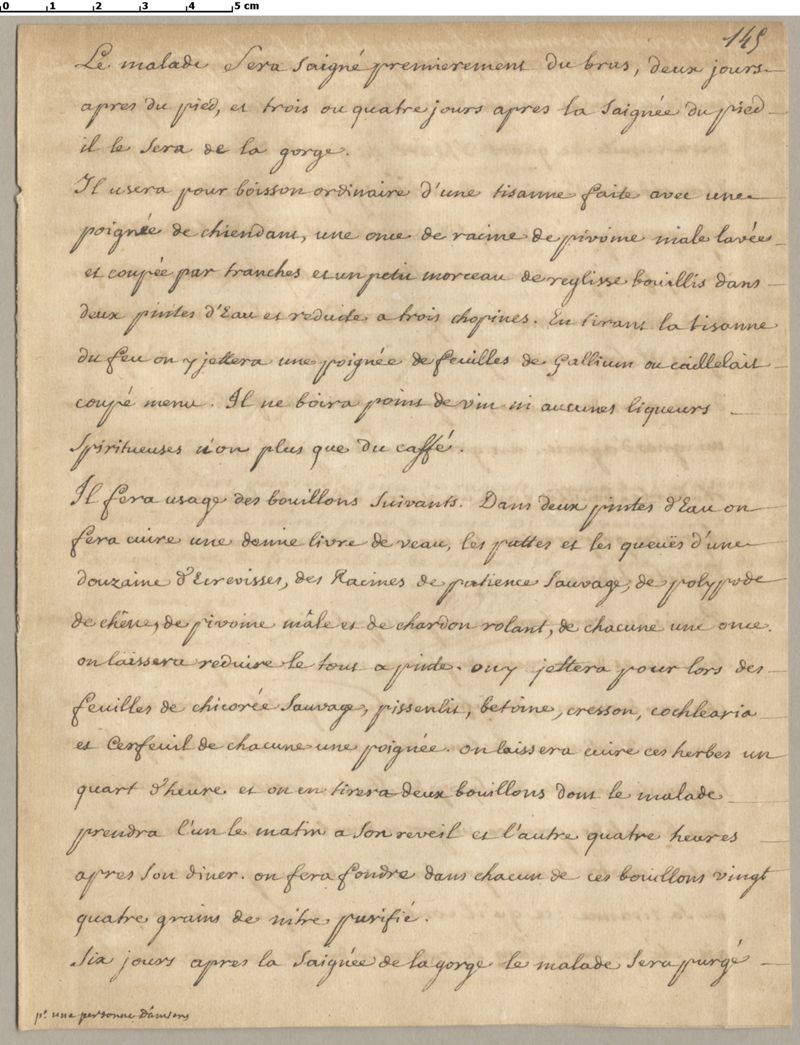 0 1 2 3 4 5 cm
145
Le malade Sera Saigné premierement du bras, deux jours
apres du pied, et trois ou quatre jours apres la Saignée du pied
il le Sera de la gorge.
Il usera pour boisson ordinaire d'une tisanne faite avec une
poignée de chiendant, une once de racine de pivoine male lavée
et coupée par tranches et un petit morceau de reglisse bouillis dans
deux pintes d'Eau et reduite a trois chopines. En tirant la tisanne
du feu on y jettera une poignée de feuilles de Gallium ou caillelait
coupé menu. Il ne boira point de vin ni aucunes liqueurs
Spiritueuses n'on plus que du caffé.
Il fera usage des bouillons Suivants. Dans deux pintes d'Eau on
fera cuire une demie livre de veau, les pattes et les queuës d'une
douzaine d'Ecrevisses, des Racines de patience Sauvage, de polypode
de chêne, de pivoine mâle et de chardon rolant, de chacune une once.
on laissera reduire le tout a pinte. on y jettera pour lors des
feuilles de chicorée Sauvage, pissenlit, betoine, cresson, cochlearia
et Cerfeuil de chacune une poignée. on laissera cuire ces herbes un
quart d'heure et on en tirera deux bouillons dont le malade
prendra l'un le matin a Son reveil et l'autre quatre heures
apres Son diner. on fera fondre dans chacun de ces bouillons vingt
quatre grains de nitre purifié.
Six jours apres la Saignée de la gorge le malade Sera purgé
pr. une personne d'amiens